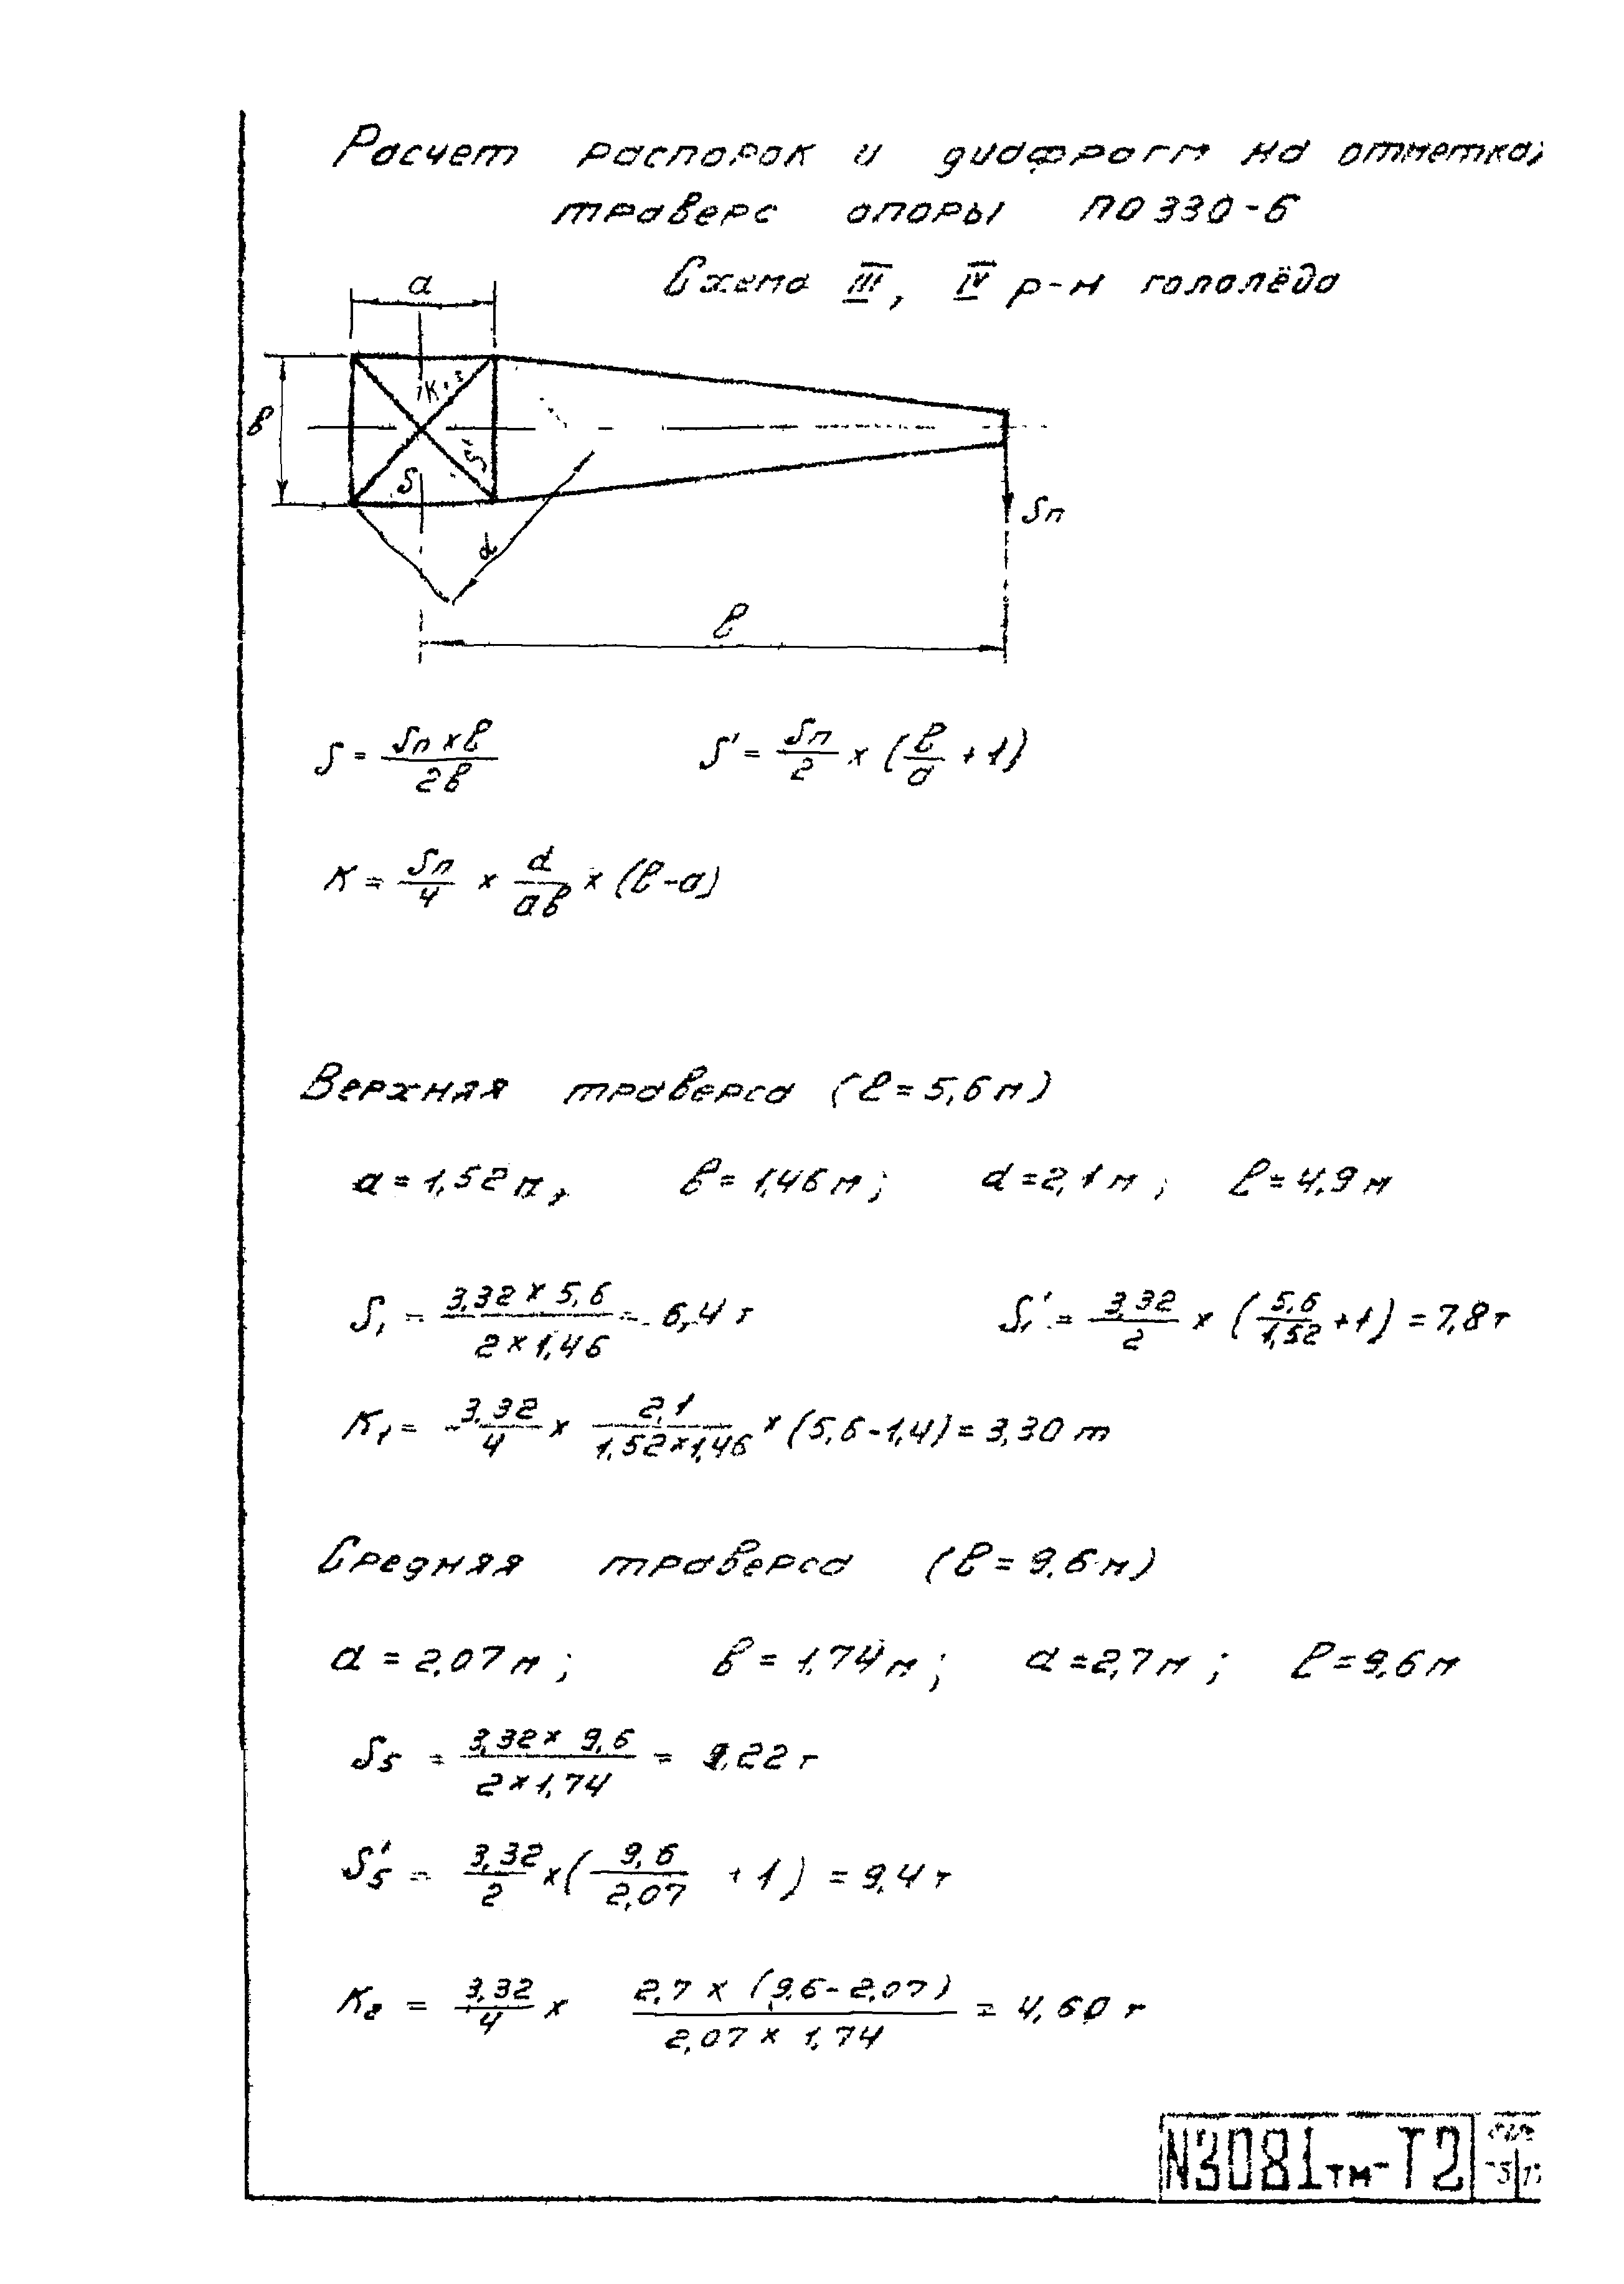 Расчет распорок и диафрагм на отметках
траверс опоры ПО330-6
Схема III, IV р-н гололёда
a
в
K1,2
S'
S
d
Sп
ℓ
S = Sп x ℓ / 2в
S' = Sп / 2 x (ℓ / a + 1)
K = Sп / 4 x d / aв x (ℓ-a)
Верхняя траверса (ℓ = 5,6 м)
a = 1,52 м, в = 1,46 м; d = 2,1 м; ℓ = 4,9 м
S1 = 3,32 x 5,6 / 2 x 1,46 = 6,4 т S1' = 3,32 / 2 x (5,6 / 1,52 + 1) = 7,8 т
K1 = 3,32 / 4 x 2,1 / 1,52 x 1,46 x (5,6 - 1,4) = 3,30 т
Средняя траверса (ℓ = 9,6 м)
a = 2,07 м; в = 1,74 м; d = 2,7 м; ℓ = 9,6 м
S5 = 3,32 x 9,6 / 2 x 1,74 = 9,22 т
S5' = 3,32 / 2 x (9,6 / 2,07 + 1) = 9,4 т
K2 = 3,32 / 4 x 2,7 x (9,6 - 2,07) / 2,07 x 1,74 = 4,60 т
N3081тм-Т2